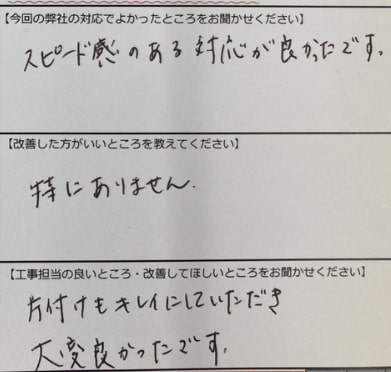 【今回の弊社の対応でよかったところをお聞かせください】
スピード感のある対応が良かったです。
【改善した方がいいところを教えてください】
特にありません.
【工事担当の良いところ・改善してほしいところをお聞かせください】
片付けもキレイにしていただき
大変良かったです。